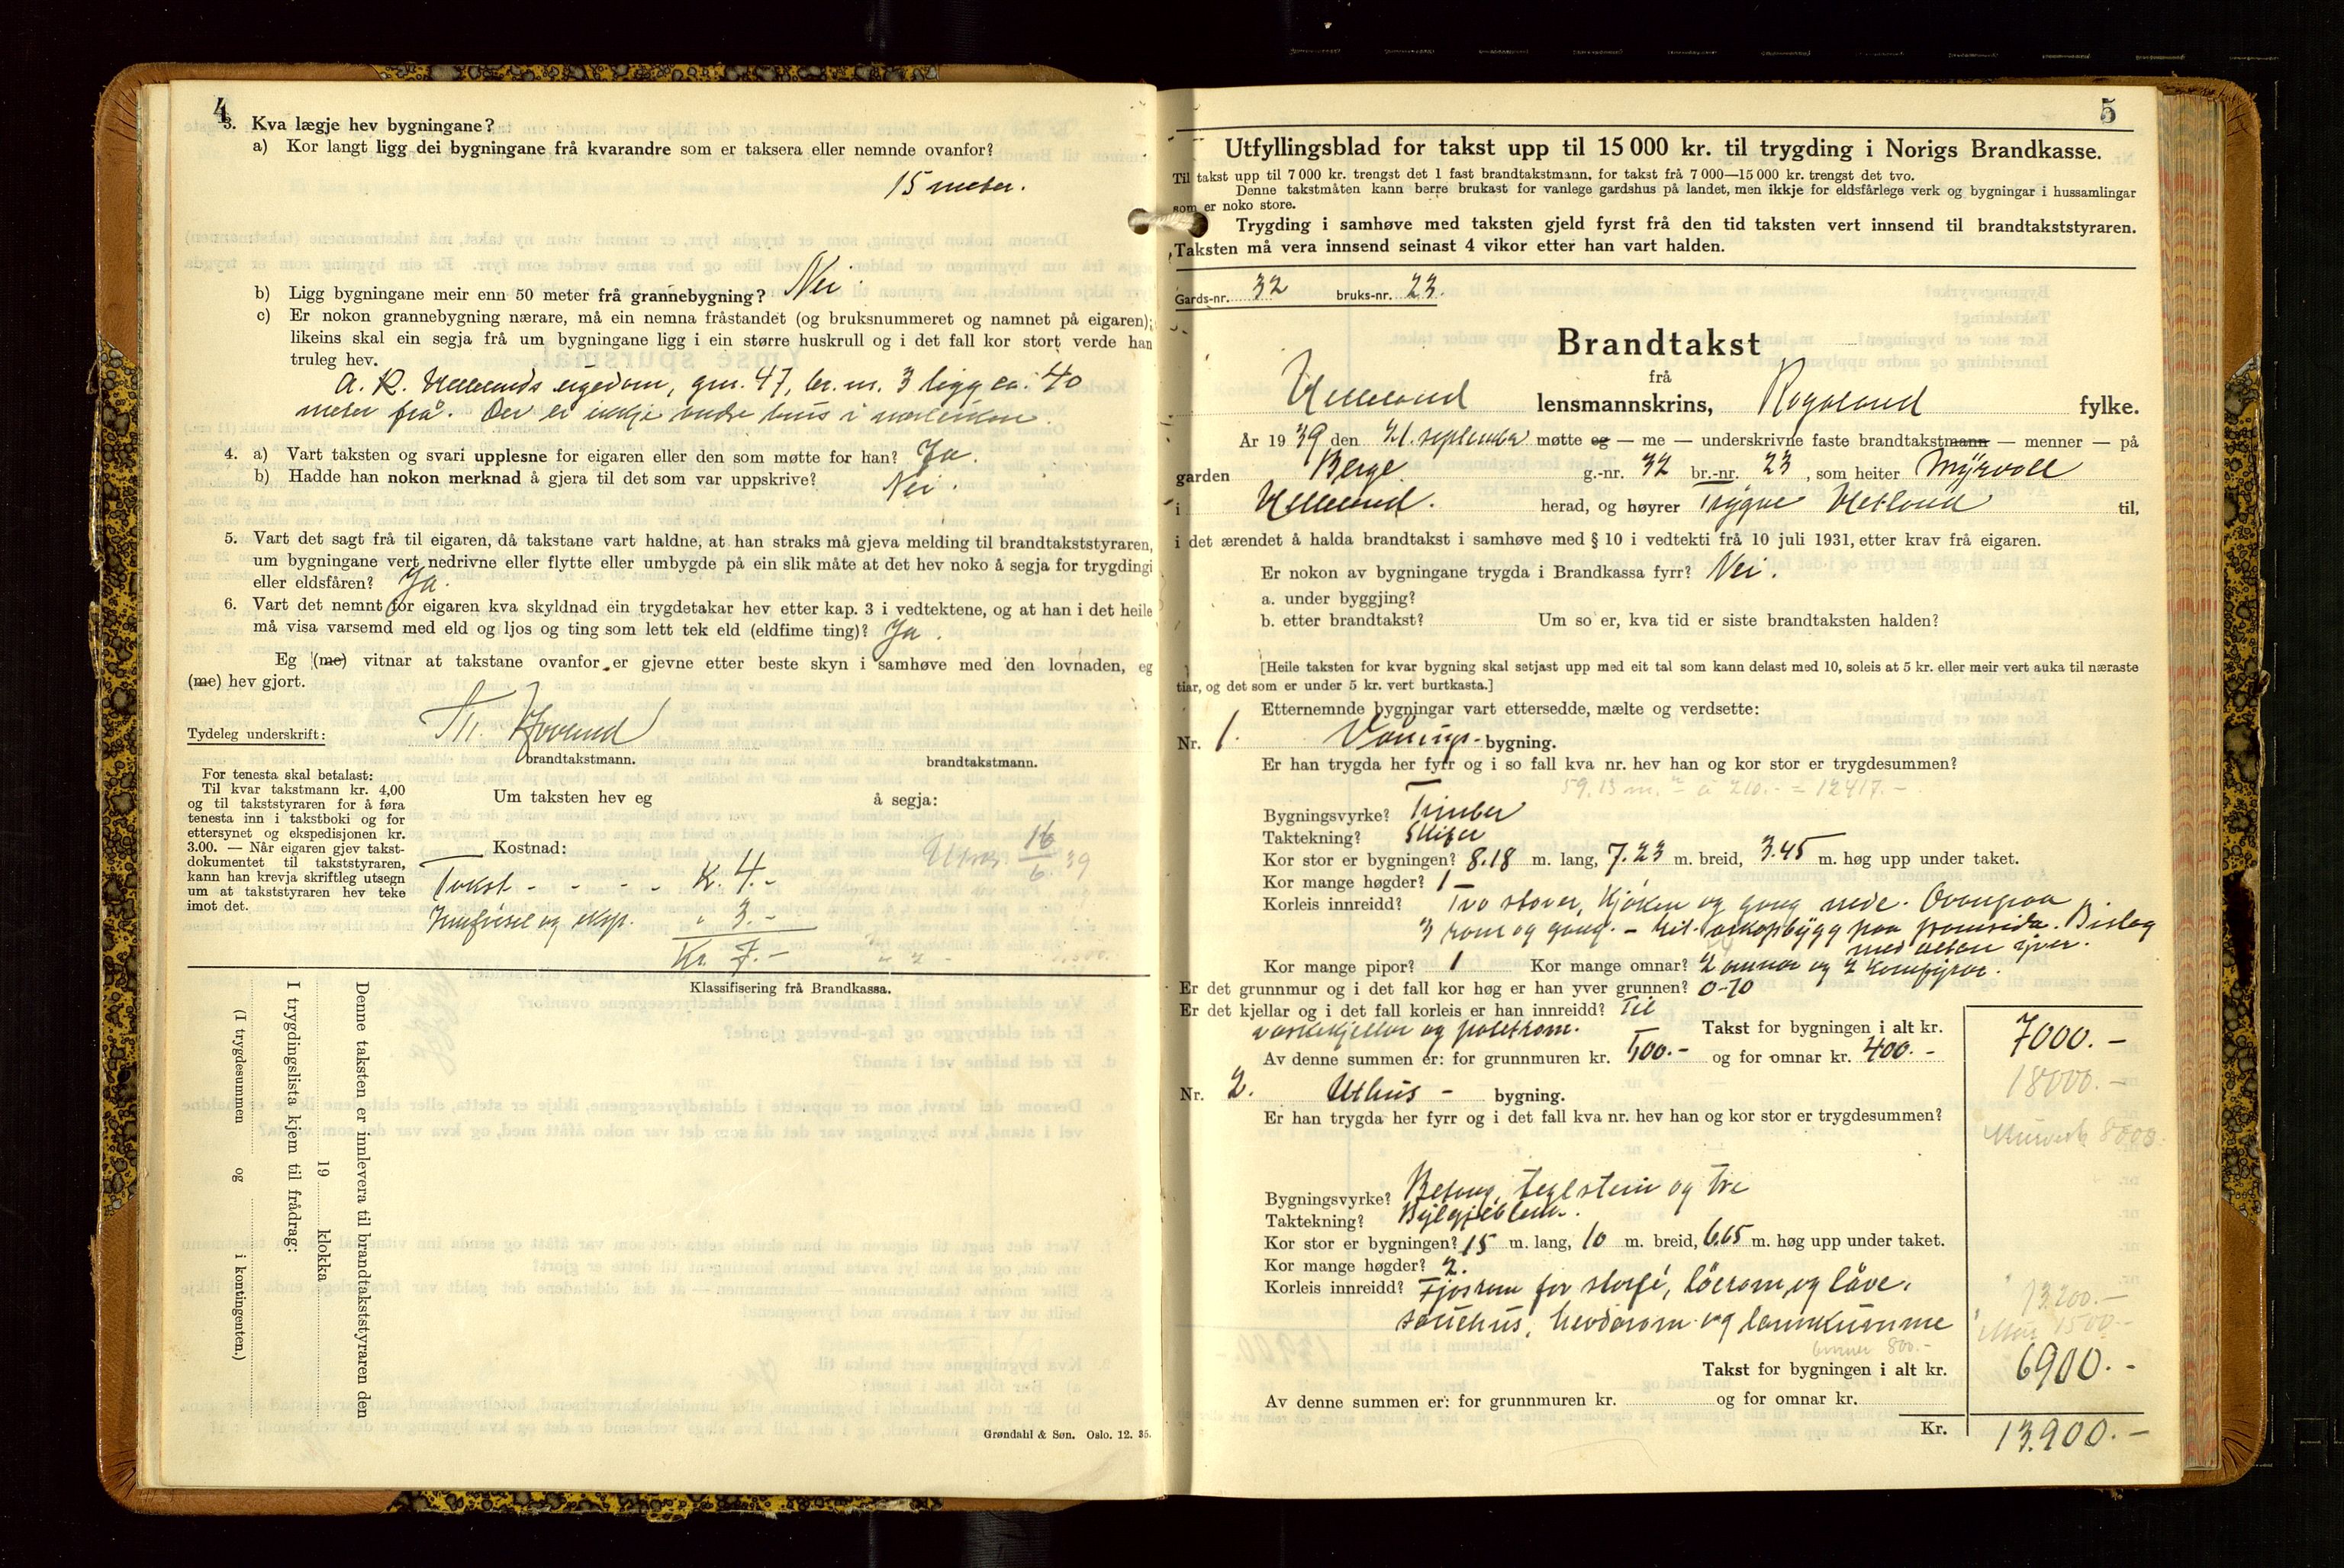 4
3. Kva lægje hev bygningane?
a) Kor langt ligg dei bygningane frå kvarandre som er taksera eller nemnde ovanfor?
15 meter.
b) Ligg bygningane meir enn 50 meter frå grannebygning? Nei.
c) Er nokon grannebygning nærare, må ein nemna fråstandet (og bruksnummeret og namnet på eigaren);
likeins skal ein segja frå um bygningane ligg i ein større huskrull og i det fall kor stort verde han
truleg hev.
A. R. Hellelands eigedom, gnr. 47, br. nr. 3 ligg ca. 40
meter frå. Der er ikkje andre hus i nærleiken.
4. a) Vart taksten og svari upplesne for eigaren eller den som møtte for han? Ja.
b) Hadde han nokon merknad å gjera til det som var uppskrive? Nei.
5. Vart det sagt frå til eigaren, då takstane vart haldne, at han straks må gjeva melding til brandtakststyraren,
um bygningane vert nedrivne eller flytte eller umbygde på ein slik måte at det hev noko å segja for trygdingi
eller eldsfåren? Ja.
6. Vart det nemnt for eigaren kva skyldnad ein trygdetakar hev etter kap. 3 i vedtektene, og at han i det heile
må visa varsemd med eld og ljos og ting som lett tek eld (eldfime ting)? Ja.
Eg (me) vitnar at takstane ovanfor er gjevne etter beste skyn i samhøve med den lovnaden, eg
(me) hev gjort.
Tydeleg underskrift:
brandtakstmann. brandtakstmann.
For tenesta skal betalast:
Til kvar takstmann kr. 4,00
og til takststyraren for å føra
tenesta inn i takstboki og for
ettersynet og ekspedisjonen kr.
3.00. — Når eigaren gjev takst-
dokumentet til takststyraren,
kann han krevja skriftleg utsegn
um at takststyraren hev teke
imot det.
Um taksten hev eg å segja:
Kostnad:
Takst - - - - K. 4.-
Innførsel og eksp. " 3.-
Kr. 7.-
16/6. 39
Klassifisering frå Brandkassa.
Denne taksten er innlevera til brandtakststyraren den
19 klokka
I trygdingslista kjem til frådrag:
(I trygdesummen og i kontingenten.)
Grøndahl & Søn. Oslo. 12. 35.
5
Utfyllingsblad for takst upp til 15 000 kr. til trygding i Norigs Brandkasse.
Til takst upp til 7 000 kr. trengst det 1 fast brandtakstmann, for takst frå 7 000—15 000 kr. trengst det tvo.
Denne takstmåten kann berre brukast for vanlege gardshus på landet, men ikkje for eldsfårlege verk og bygningar i hussamlingar
som er noko store.
Trygding i samhøve med taksten gjeld fyrst frå den tid taksten vert innsend til brandtakststyraren.
Taksten må vera innsend seinast 4 vikor etter han vart halden.
Gards-nr. 32 bruks-nr. 23.
Brandtakst
frå
Helleland lensmannskrins, Rogaland fylke.
År 1939 den 21. september møtte eg — me — underskrivne faste brandtakstmann — menner — på
garden Berge g.-nr. 32 br.-nr. 23, som heiter Myrvoll
i Helleland. herad, og høyrer Trygve Hetland til,
i det ærendet å halda brandtakst i samhøve med § 10 i vedtekti frå 10 juli 1931, etter krav frå eigaren.
Er nokon av bygningane trygda i Brandkassa fyrr? Nei.
a. under byggjing?
b. etter brandtakst? Um so er, kva tid er siste brandtaksten halden?
[Heile taksten for kvar bygning skal setjast upp med eit tal som kann delast med 10, soleis at 5 kr. eller meir vert auka til næraste
tiar, og det som er under 5 kr. vert burtkasta.]
Etternemnde bygningar vart ettersedde, mælte og verdsette:
Nr. 1. Vånings- bygning.
Er han trygda her fyrr og i so fall kva nr. hev han og kor stor er trygdesummen?
59.13 m.² à 210.- = 12417.-
Bygningsvyrke? Timber
Taktekning? Skifer
Kor stor er bygningen? 8.18 m. lang, 7.23 m. breid, 3.45 m. høg upp under taket.
Kor mange høgder? 1 —
Korleis innreidd? Tvo stover, kjøken og gang nede. Ovanpaa
3 rom og gang. - til arkopbygg paa framsida. Bislag
med altan yver.
Kor mange pipor? 1 Kor mange omnar? 2 omnar og 2 komfyrar.
Er det grunnmur og i det fall kor høg er han yver grunnen? 0-70
Er det kjellar og i det fall korleis er han innreidd? Til
vaskekjellar og potetrom. Takst for bygningen i alt kr. 7000.-
Av denne summen er: for grunnmuren kr. og for omnar kr. 400.-
18000.-
Nr. 2. Uthus - bygning.
Er han trygda her fyrr og i det fall kva nr. hev han og kor stor er trygdesummen?
Bygningsvyrke? Betong, teglstein og tre
Taktekning? Bylgjeblekk.
Kor stor er bygningen? 15 m. lang, 10 m. breid, 6.65 m. høg upp under taket.
Kor mange høgder? 2.
Korleis innreidd? Fjosrom for storfé, löerom og låve.
sauehus, og lannkumme
13.200.-
1500.-
800.-
Takst for bygningen i alt kr. 6900.-
Av denne summen er: for grunnmuren kr. og for omnar kr.
Kr. 13.900.-